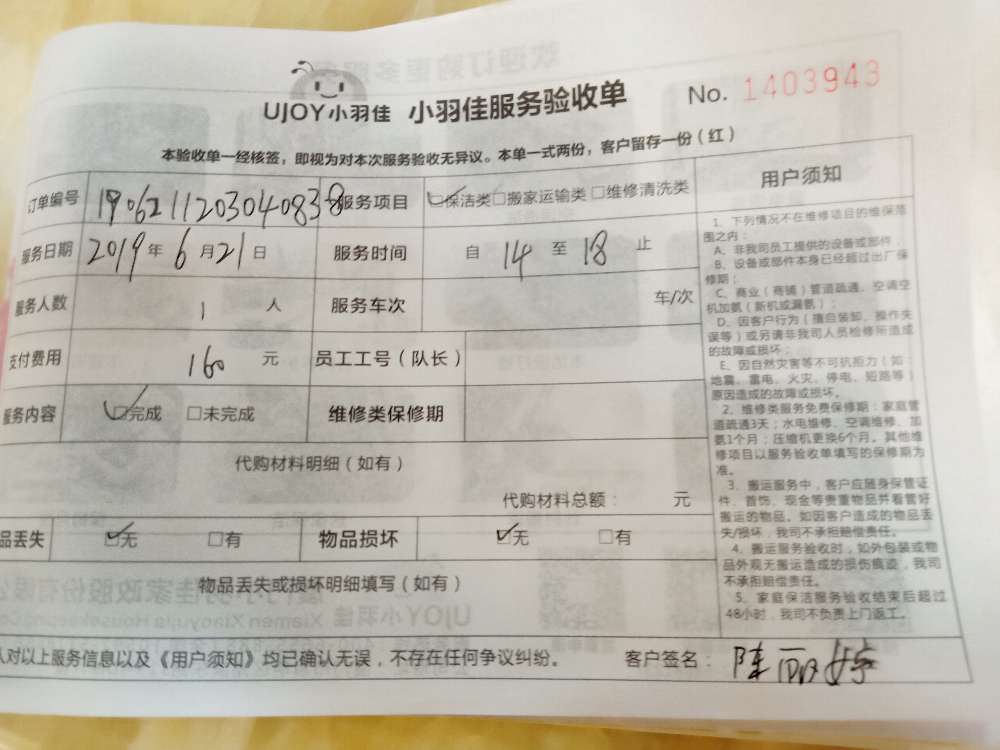 UJOY小羽佳 小羽佳服务验收单 No. 1403943
本验收单一经核签，即视为对本次服务验收无异议。本单一式两份，客户留存一份（红）
订单编号 1906211203040838 服务项目 ☑保洁类 □搬家运输类 □维修清洗类
服务日期 2019年6月21日 服务时间 自 14 至 18 止
服务人数 1 人 服务车次 车/次
支付费用 160 元 员工工号（队长）
服务内容 ☑完成 □未完成 维修类保修期
代购材料明细（如有）
代购材料总额： 元
品丢失 ☑无 □有 物品损坏 ☑无 □有
物品丢失或损坏明细填写（如有）
人对以上服务信息以及《用户须知》均已确认无误，不存在任何争议纠纷。 客户签名：陈丽婷
用户须知
1、下列情况不在维修项目的维保范
围之内：
A、非我司员工提供的设备或部件；
B、设备或部件本身已经超过出厂保
修期；
C、商业（商铺）管道疏通、空调空
机加氨（新机或漏氨）；
D、因客户行为（擅自装卸、操作失
误等）或另请非我司人员检修所造成
的故障或损坏；
E、因自然灾害等不可抗拒力（如：
地震、雷电、火灾、停电、短路等）
原因造成的故障或损坏。
2、维修类服务免费保修期：家庭管
道疏通3天；水电维修、空调维修、加
氨1个月；压缩机更换6个月。其他维
修项目以服务验收单填写的保修期为
准。
3、搬运服务中，客户应随身保管证
件、首饰、现金等贵重物品并看管好
搬运的物品。如因客户造成的物品丢
失/损坏，我司不承担赔偿责任。
4、搬运服务验收时，如外包装或物
品外观无搬运造成的损伤痕迹，我司
不承担赔偿责任。
5、家庭保洁服务验收结束后超过
48小时，我司不负责上门返工。